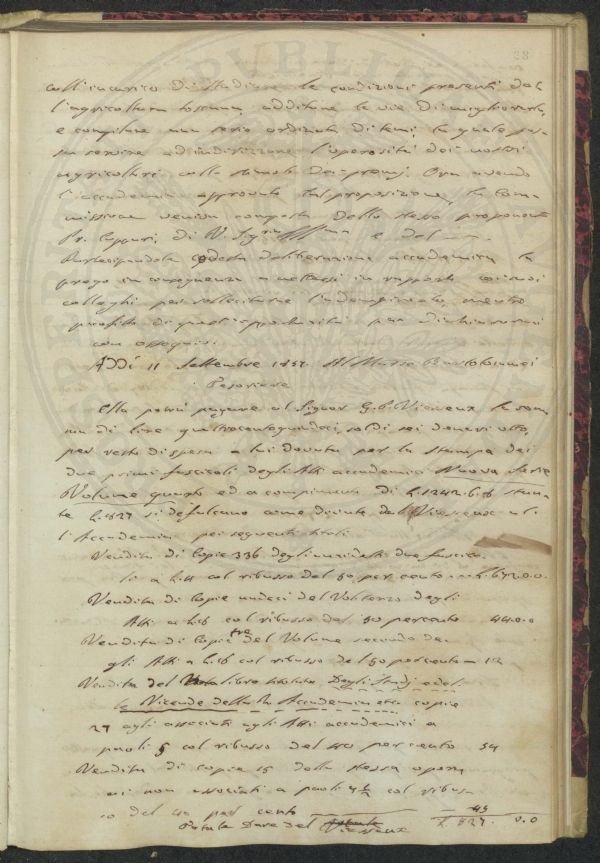 38
coll'incarico di studiare le condizioni presenti del
l'agricoltura toscana, additare le vie di migliorarla,
e compilare una serie ordinata di temi, la quale pos-
sa servire ad indirizzare l'operosità dei nostri
agricoltori collo stimolo dei premj. Ora avendo
l'accademia approvata tal proposizione, la Com-
missione veniva composta dello stesso proponente
Pr. Cuppari, di V. Sig.ria Ill.ma e del
Partecipandole codesta deliberazione accademica la
prego in conseguenza a mettersi in rapporto coi suoi
colleghi per sollecitarne l'adempimento, mentre
profitto di quest'opportunità per dichiararmi
con ossequio.
Addì 11 Settembre 1857. Al Bartolommei
Tesoriere
Ella potrà pagare al Signor G. P. Vieusseux la som-
ma di lire quattrocentoquindici, soldi sei denari otto,
per resto di spesa a lui dovuta per la stampa dei
due primi fascicoli degli Atti accademici Nuova Serie
Volume quarto ed a compimento di L. 1242.6.8 stan-
te L. 827 si defalcano come dovute dal Vieusseux al-
l'Accademia pei seguenti titoli
Vendita di copie 336 degli due fascico-
li a col ribasso del 50 per cento L. 672.0.0
Vendita di copie undici del Vol. terzo degli
Atti a col ribasso del 50 per cento 44.0.0
Vendita di copie tre del Volume secondo de-
gli Atti a col ribasso del 50 per cento 12
Vendita del libro titolato Degli Studj e del-
le Vicende della R. Accademia etc. copie
27 agli associati agli Atti accademici a
paoli 5 col ribasso del 40 per cento 54
Vendita di copie 15 della stessa opera
ai non associati a paoli col ribas-
so del 40 per cento 45
Totale Dare del Vieusseux L. 827. 0.0